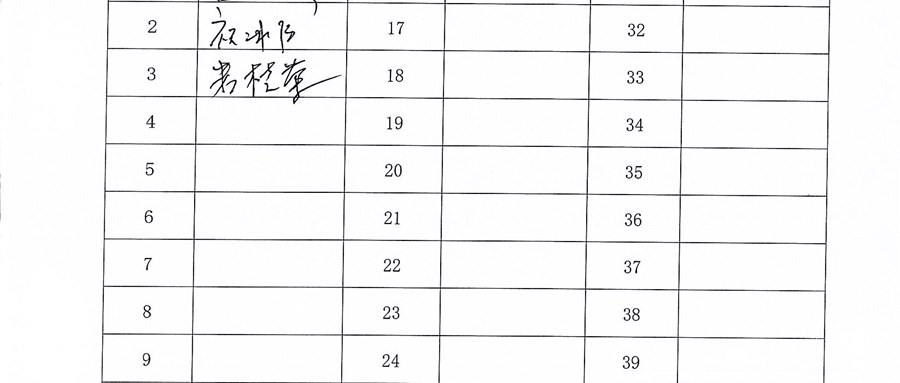 2 17 32
3 18 33
4 19 34
5 20 35
6 21 36
7 22 37
8 23 38
9 24 39